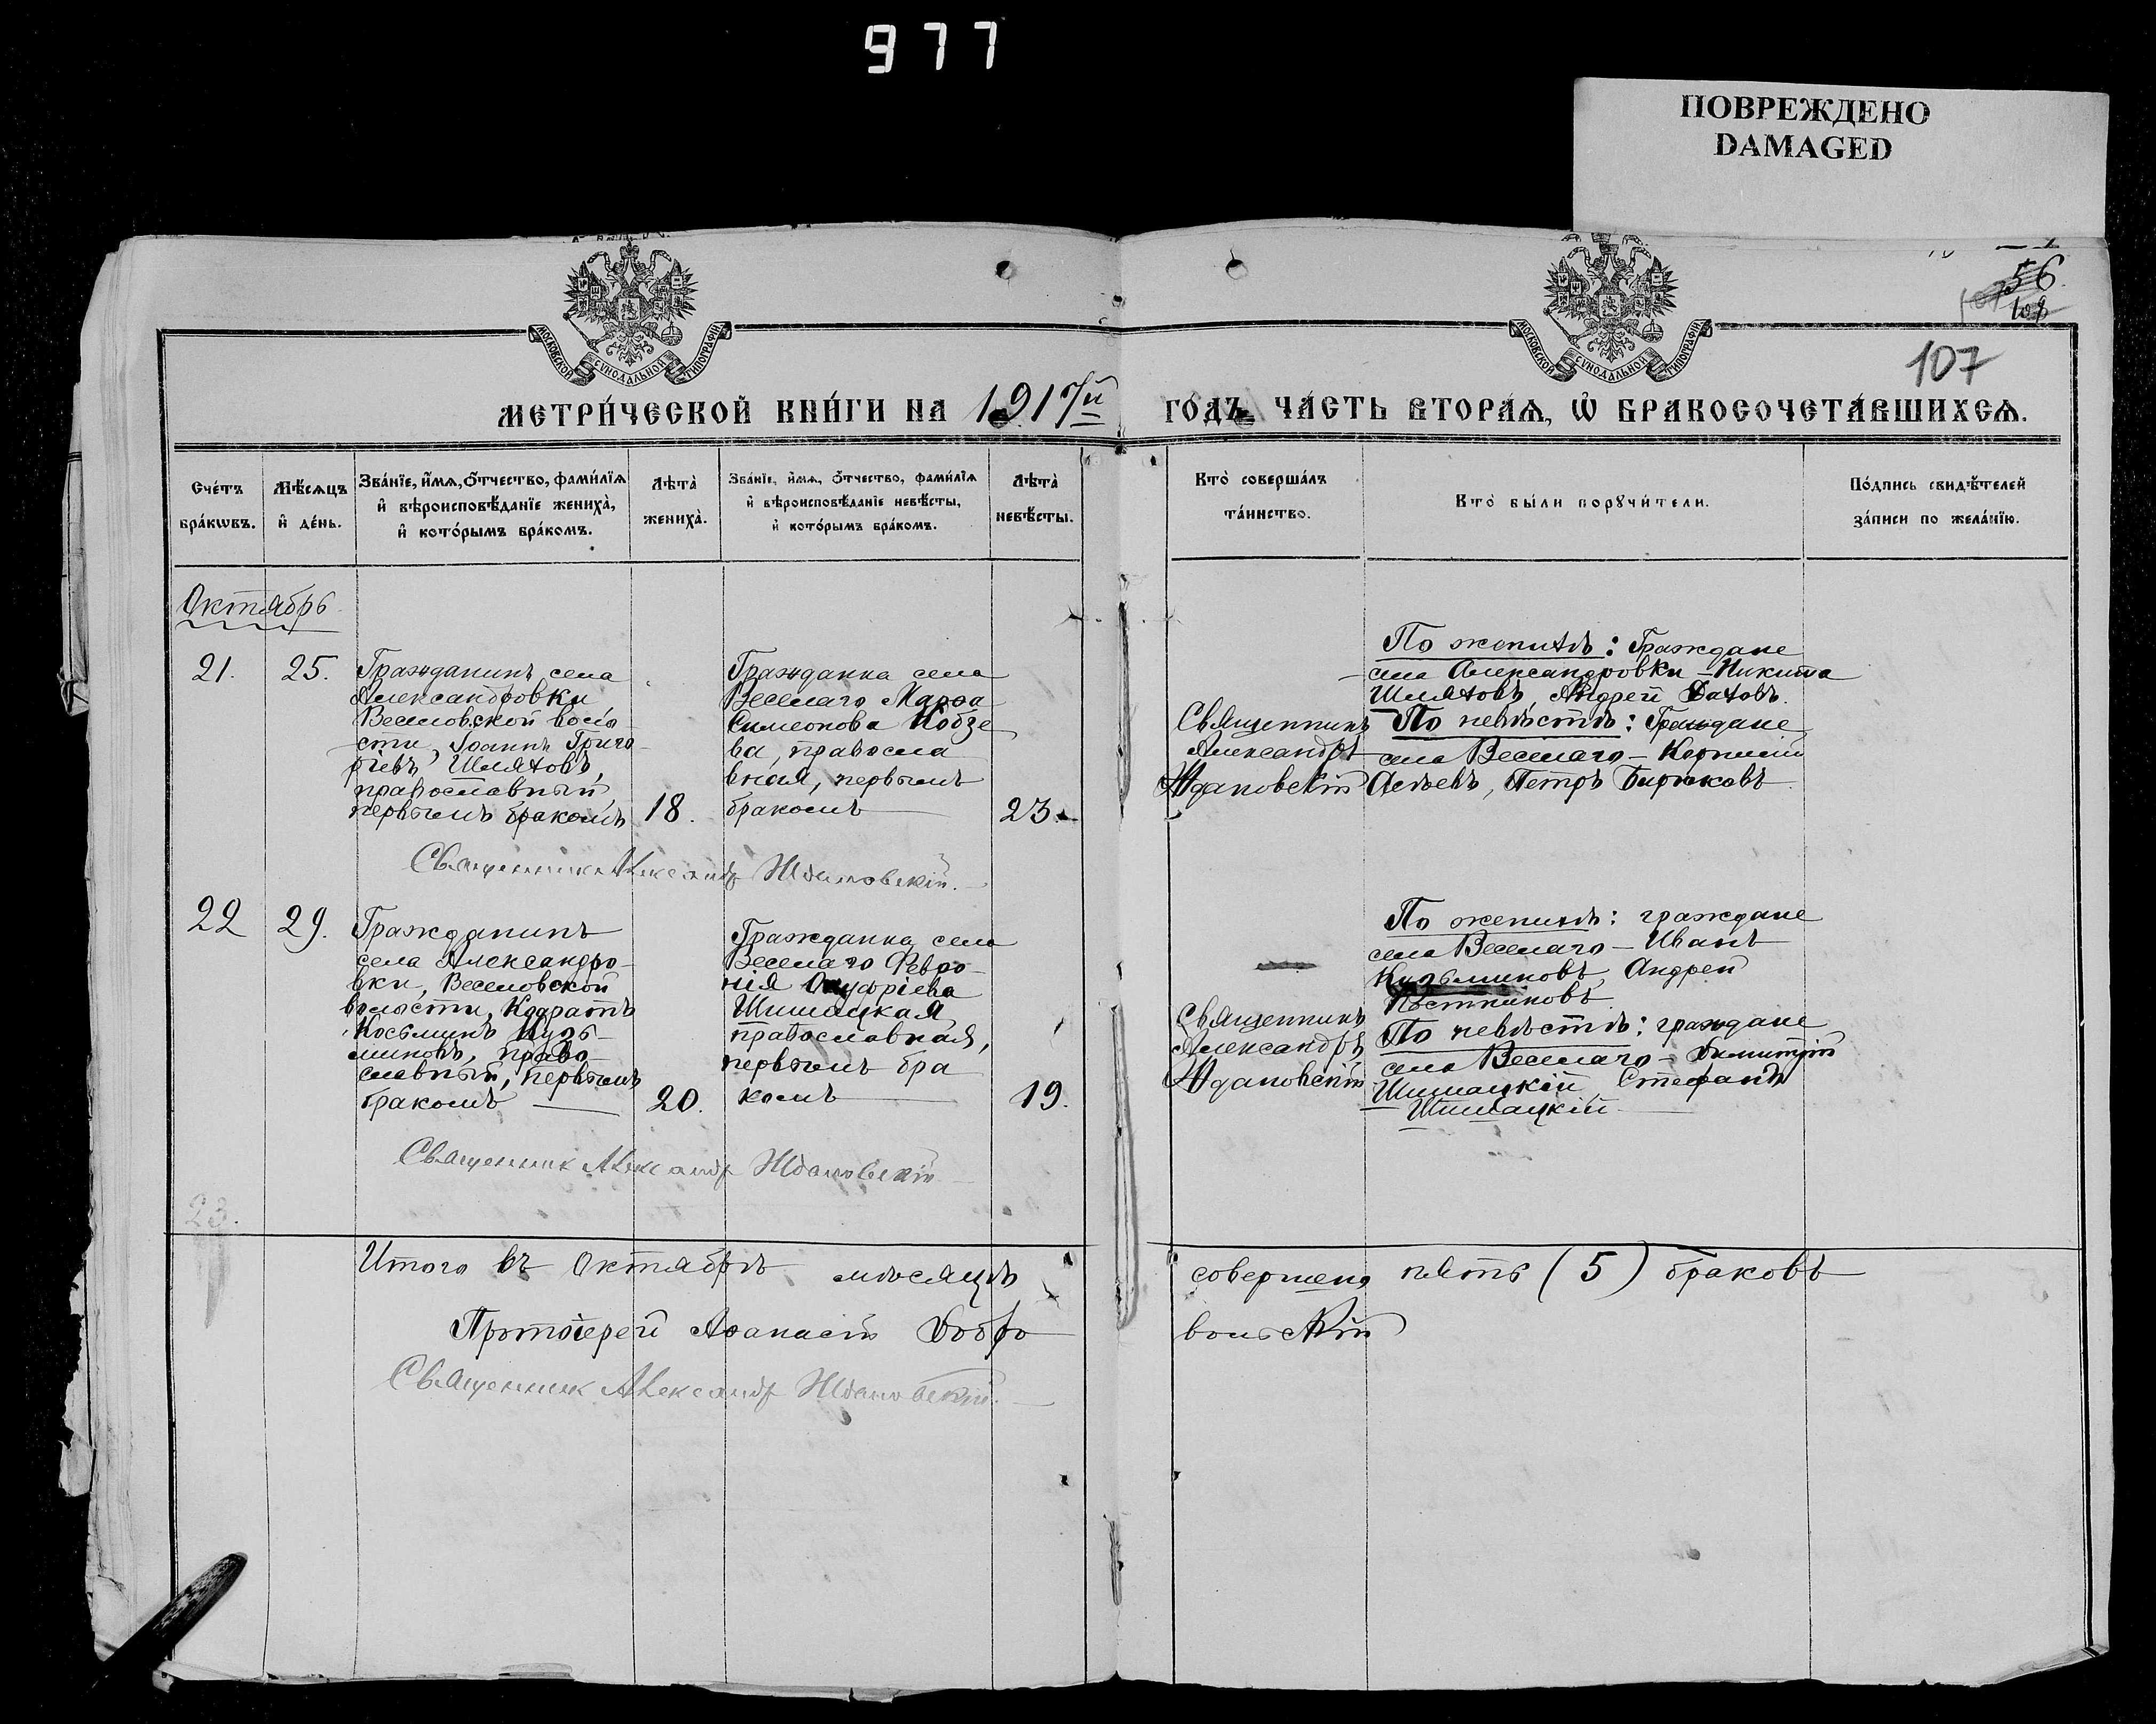 977
ПОВРЕЖДЕНО
DAMAGED
56.
107
МОСКОВСКОЙ СѴНОДАЛЬНОЙ ТИПОГРАФІИ
МОСКОВСКОЙ СѴНОДАЛЬНОЙ ТИПОГРАФІИ
МЕТРИ́ЧЕСКОЙ КНИ́ГИ НА 1917й ГОДЪ, ЧА́СТЬ ВТОРА́Я, Ѡ҆ БРАКОСОЧЕТА́ВШИХСЯ.
Сче́тъ бра́кѡвъ.
Мѣ́сяцъ и҆ де́нь.
Зва́нїе, и҆́мя, ѻ҆́тчество, фами́лїя и҆ вѣроисповѣ́данїе жениха̀, и҆ кото́рымъ бра́комъ.
Лѣта̀ жениха̀.
Зва́нїе, и҆́мя, ѻ҆́тчество, фами́лїя и҆ вѣроисповѣ́данїе невѣ́сты, и҆ кото́рымъ бра́комъ.
Лѣта̀ невѣ́сты.
Кто̀ соверша́лъ та́инство.
Кто̀ бы́ли порꙋчи́тели.
По́дпись свидѣ́телей за́писи по жела́нїю.
Октябрь.
21.
25.
Гражданинъ села
Александровки
Веселовской воло-
сти, Іоаннъ Григо-
ріевъ Шляховъ,
православный
первымъ бракомъ
18.
Гражданка села
Веселаго Марѳа
Симеонова Кобзе
ва, правосла
вная, первымъ
бракомъ
23.
Священникъ
Александръ
Ждановскій
По женихѣ: Граждане
села Александровки - Никита
Шляховъ, Андрей
По невѣстѣ: Граждане
села Веселаго - Корнилій
Петръ Бирюковъ
Священникъ Александр Ждановскій.
22
29.
Гражданинъ
села Александро-
вки, Веселовской
волости, Кодратъ
Косьминъ Кузь-
миновъ, право-
славный, первымъ
бракомъ
20.
Гражданка села
Веселаго Февро-
нія Онуфріева
Шишацкая
православная,
первымъ бра
комъ
19.
Священникъ
Александръ
Ждановскій
По женихѣ: граждане
села Веселаго - Иванъ
Кузьминовъ, Андрей
Постниковъ
По невѣстѣ: граждане
села Веселаго - Димитрій
Шишацкій Стефанъ
Шишацкій
Священник Александр Ждановскій
23.
Итого въ Октябрѣ мѣсяцѣ совершено пять (5) браковъ
Протоіерей Аѳанасій Добровольскій
Священник Александр Ждановскій.